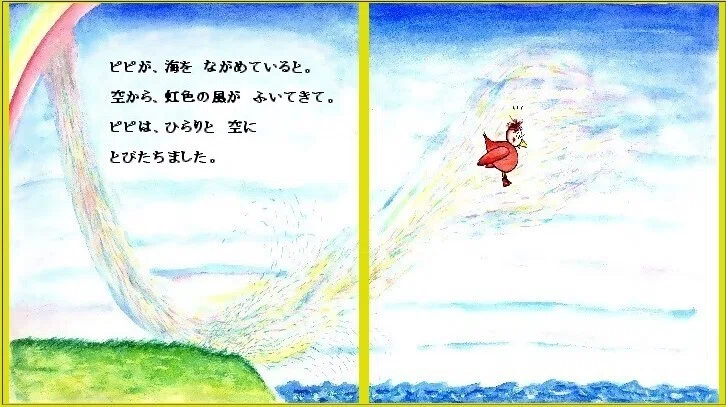 ピピが、海を ながめていると。
空から、虹色の風が ふいてきて。
ピピは、ひらりと 空に
とびたちました。